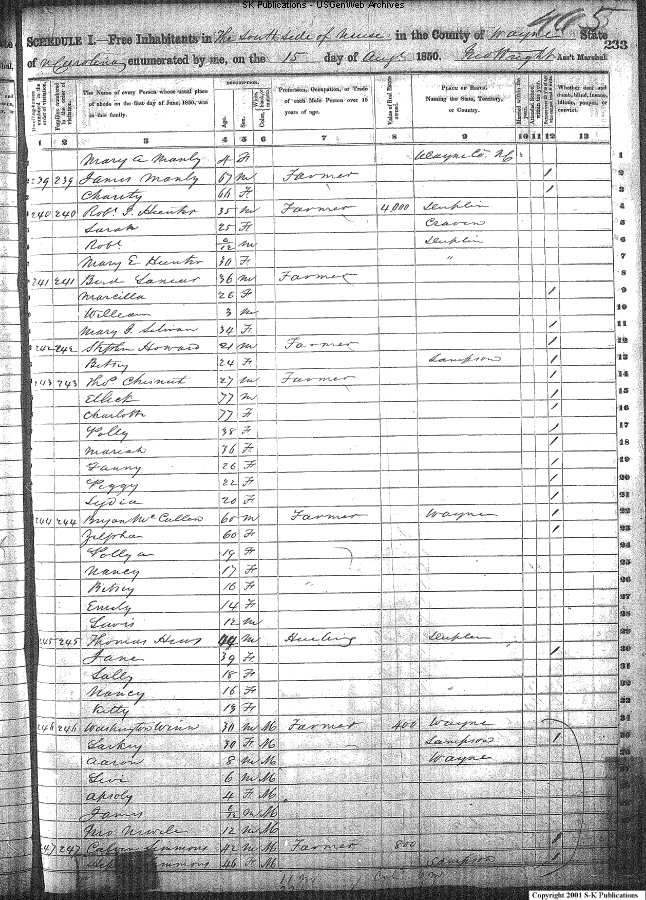 SK Publications - USGenWeb Archives
495
SCHEDULE I.—Free Inhabitants in The South side of Neuse in the County of Wayne State
of N Carolina enumerated by me, on the 15 day of Augt 1850. Jno Wright Ass't Marshal.
233
Dwelling-houses numbered in the order of visitation.
Families numbered in the order of visitation.
The Name of every Person whose usual place of abode on the first day of June, 1850, was in this family.
DESCRIPTION.
Age.
Sex.
Color,
Profession, Occupation, or Trade of each Male Person over 15 years of age.
Value of Real Estate owned.
PLACE OF BIRTH. Naming the State, Territory, or Country.
Married within the year.
Attended School within the year.
Whether deaf and dumb, blind, insane, idiotic, pauper, or convict.
1 2 3 4 5 6 7 8 9 10 11 12 13
Mary A Manly F Wayne Co. NC 1
239 239 James Manly 67 M Farmer / 2
Charity 66 F / 3
240 240 Robt J Hunter 35 M Farmer 4000 Duplin 4
Sarah 25 F Craven 5
Robt /12 M Duplin 6
Mary E Hunter 30 F " 7
241 241 Burd Lanier 36 M Farmer 8
Marcilla 26 F / 9
William 3 M 10
Mary J Selman 34 F / 11
242 242 Stephen Howard 21 M Farmer / 12
Betsy 24 F Sampson / 13
243 243 Thos Chesnut 27 M Farmer / 14
Elleck 77 M / 15
Charlotte 77 F / 16
Polly 38 F / 17
Mariah 36 F / 18
Fanny 26 F / 19
Peggy 22 F / 20
Lydia 20 F / 21
244 244 Bryan McCullen 60 M Farmer Wayne / 22
Zilpha 60 F / 23
Polly A 19 F 24
Nancy 17 F 25
Betsey 16 F 26
Emily 14 F 27
Lewis 12 M 28
245 245 Thomas Hews 44 M Duplin 29
Jane 39 F / 30
Sally 18 F 31
Nancy 16 F " 32
Kitty 13 F 33
246 246 Washington Winn 30 M M Farmer 400 Wayne 34
30 F M Sampson / 35
Aaron 8 M M Wayne
Levi 6 M M
4 F M
James /12 M M
Jno 12 M M
247 247 Calvin Simmons 42 M M Farmer 800 /
Simmons 46 F M Sampson /
Copyright 2001 S-K Publications